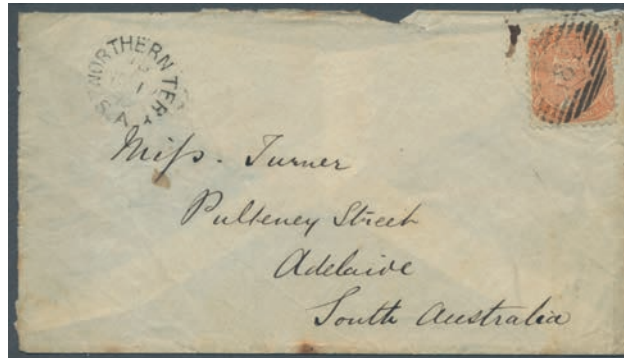 NORTHERN TERY
S.A
Miss. Turner
Pulteney Street
Adelaide
South Australia